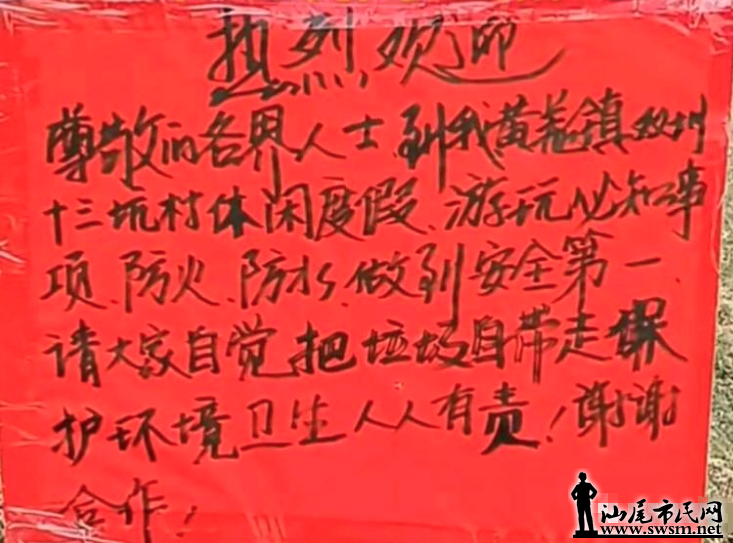 热烈欢迎
尊敬的各界人士到我黄羌镇双圳
十三坑村休闲度假、游玩必知事
项、防火、防水、做到安全第一、
请大家自觉把垃圾自带走保
护环境卫生人人有责！谢谢
合作！
汕尾市民网
www.swsm.net